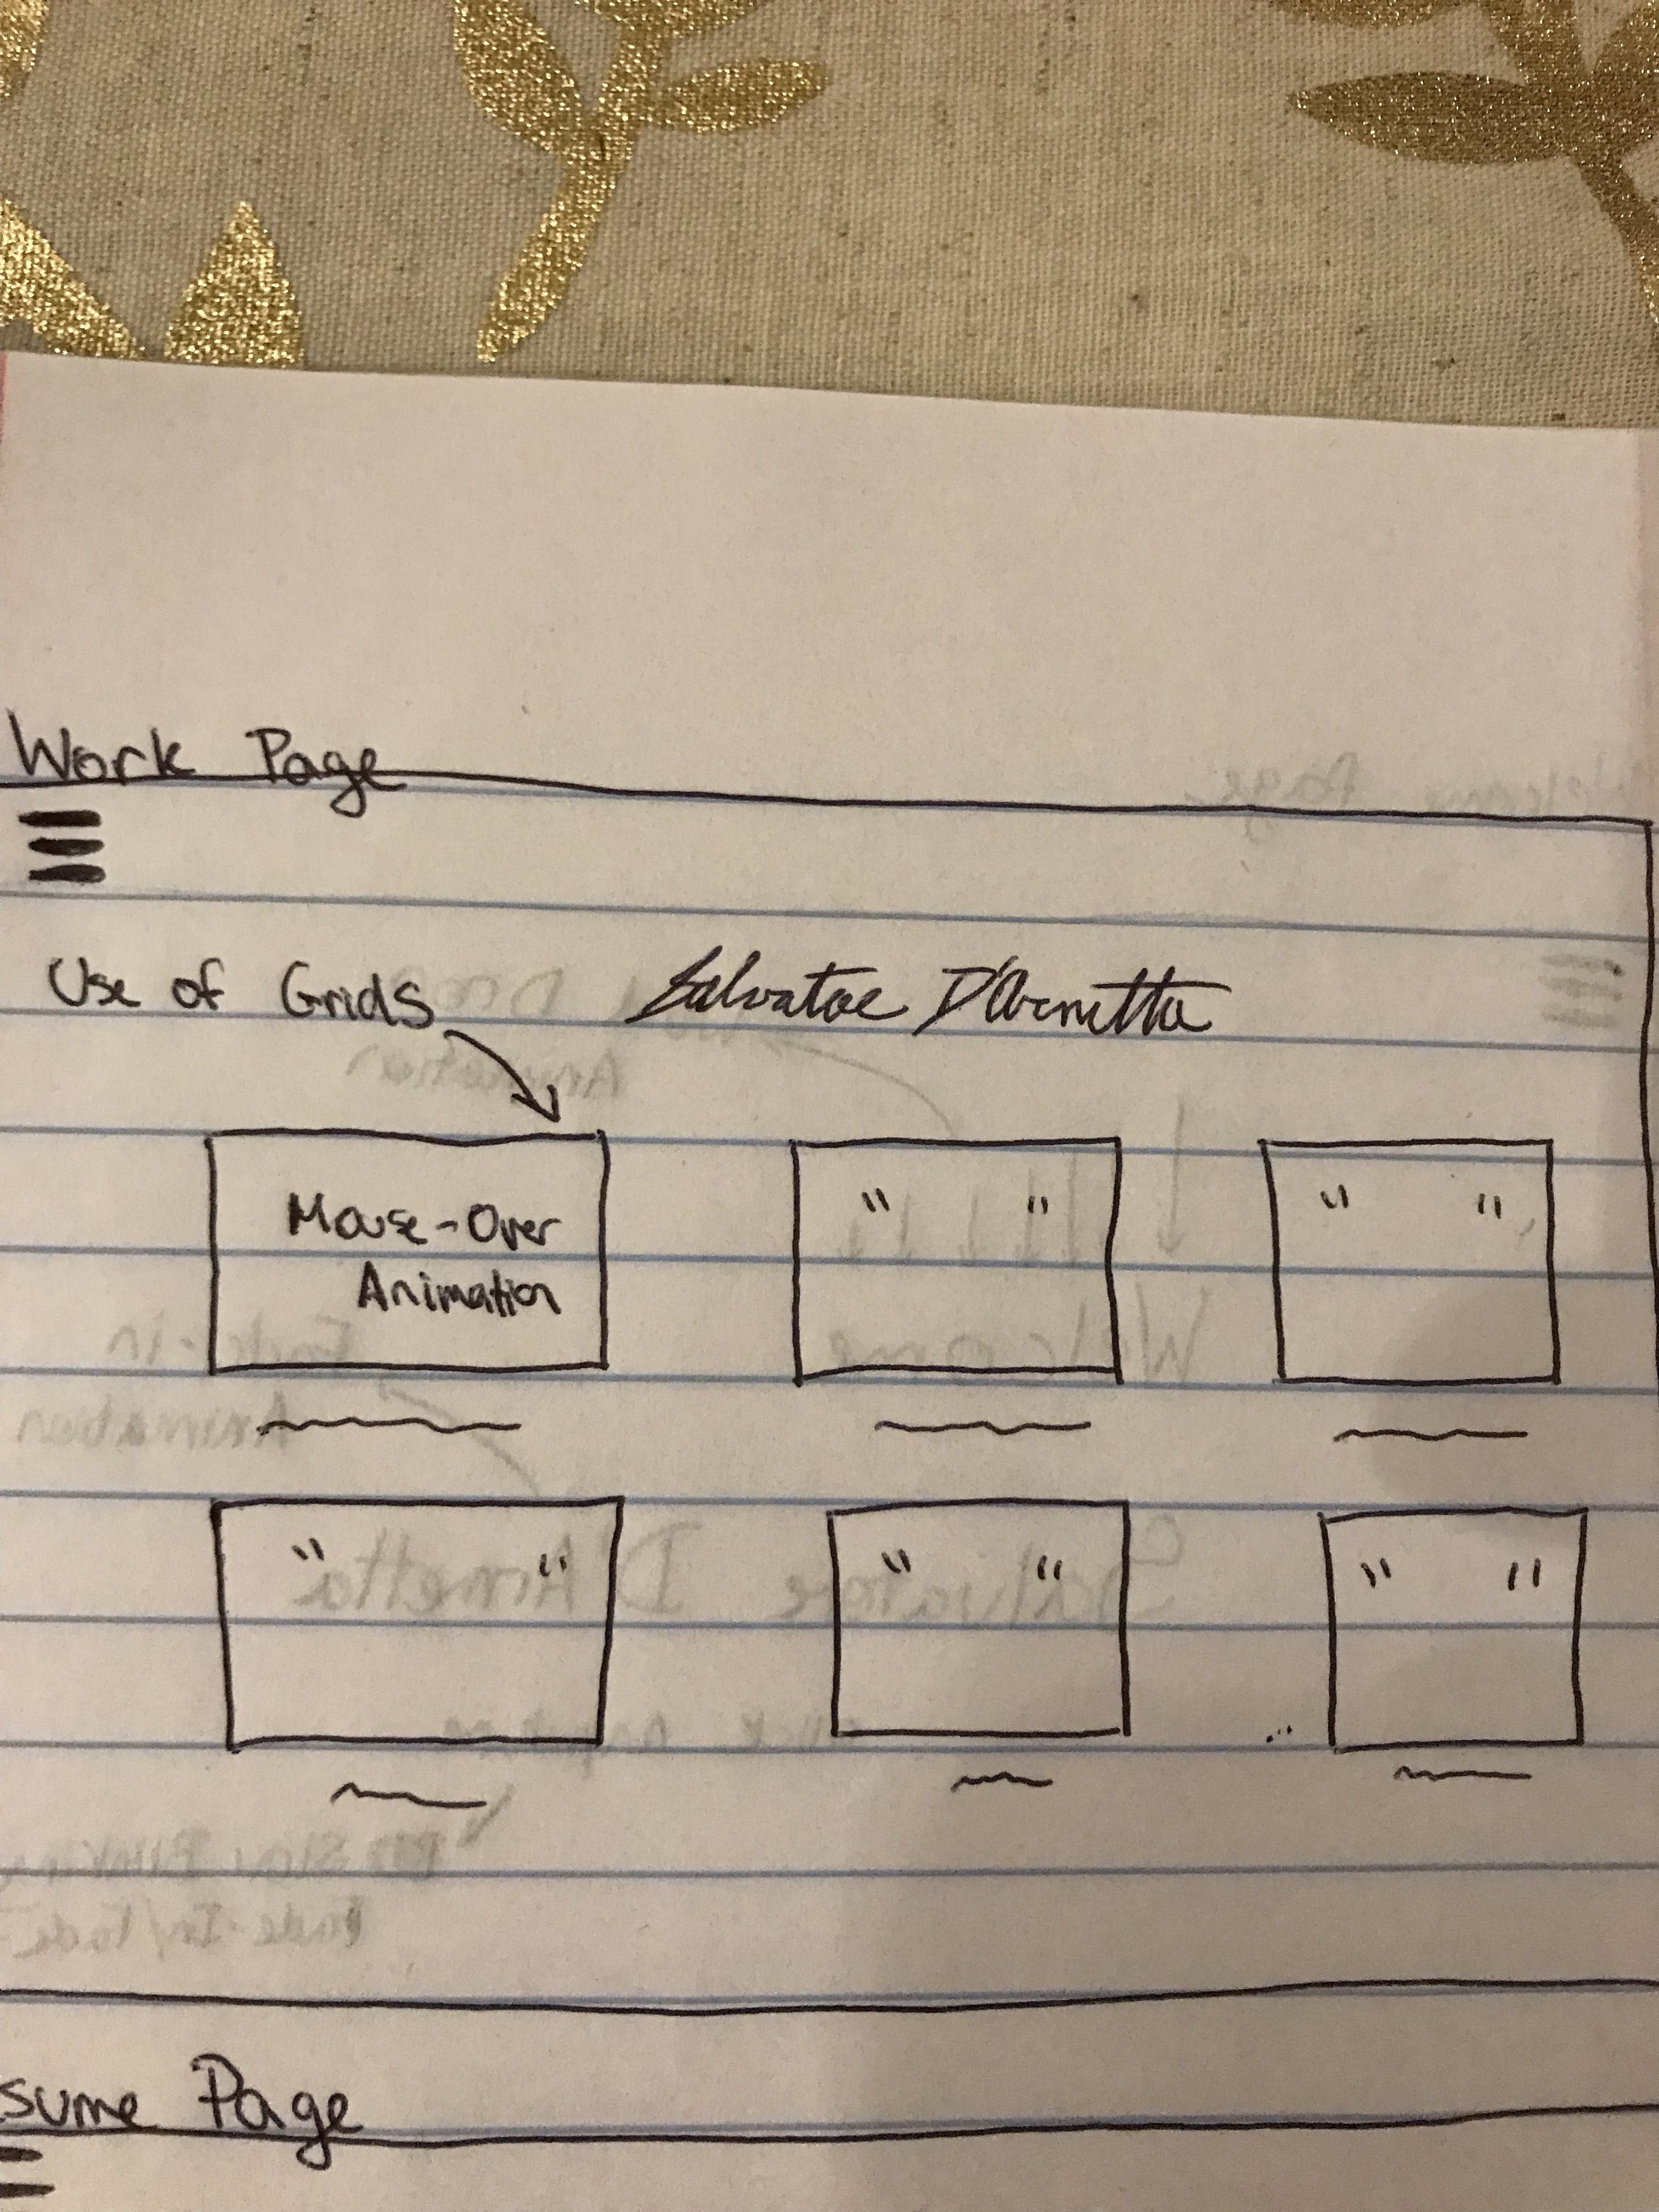 Work Page
Use of Grids Salvatore D'Arnetta
Mouse-Over
Animation
" " " "
" " " " " "
sume Page